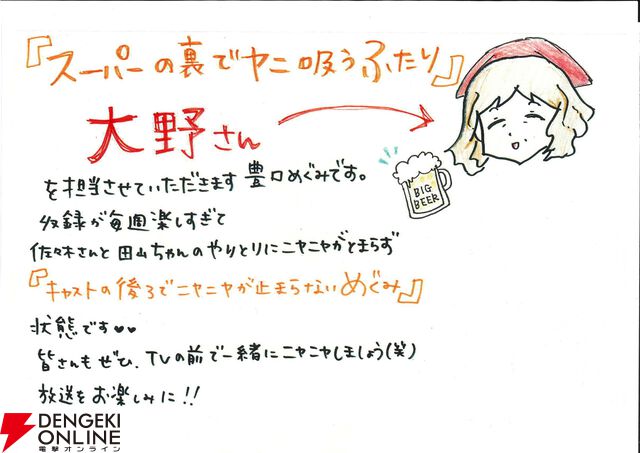 『スーパーの裏でヤニ吸うふたり』
大野さん
を担当させていただきます 豊口めぐみです。
収録が毎週楽しすぎて
佐々木さんと田山ちゃんのやりとりにニヤニヤがとまらず
『キャストの後ろでニヤニヤが止まらないめぐみ』
状態です♥♥
皆さんもぜひ、TVの前で一緒にニヤニヤしましょう(笑)
放送をお楽しみに!!
BIG
BEER
DENGEKI
ONLINE
電撃オンライン